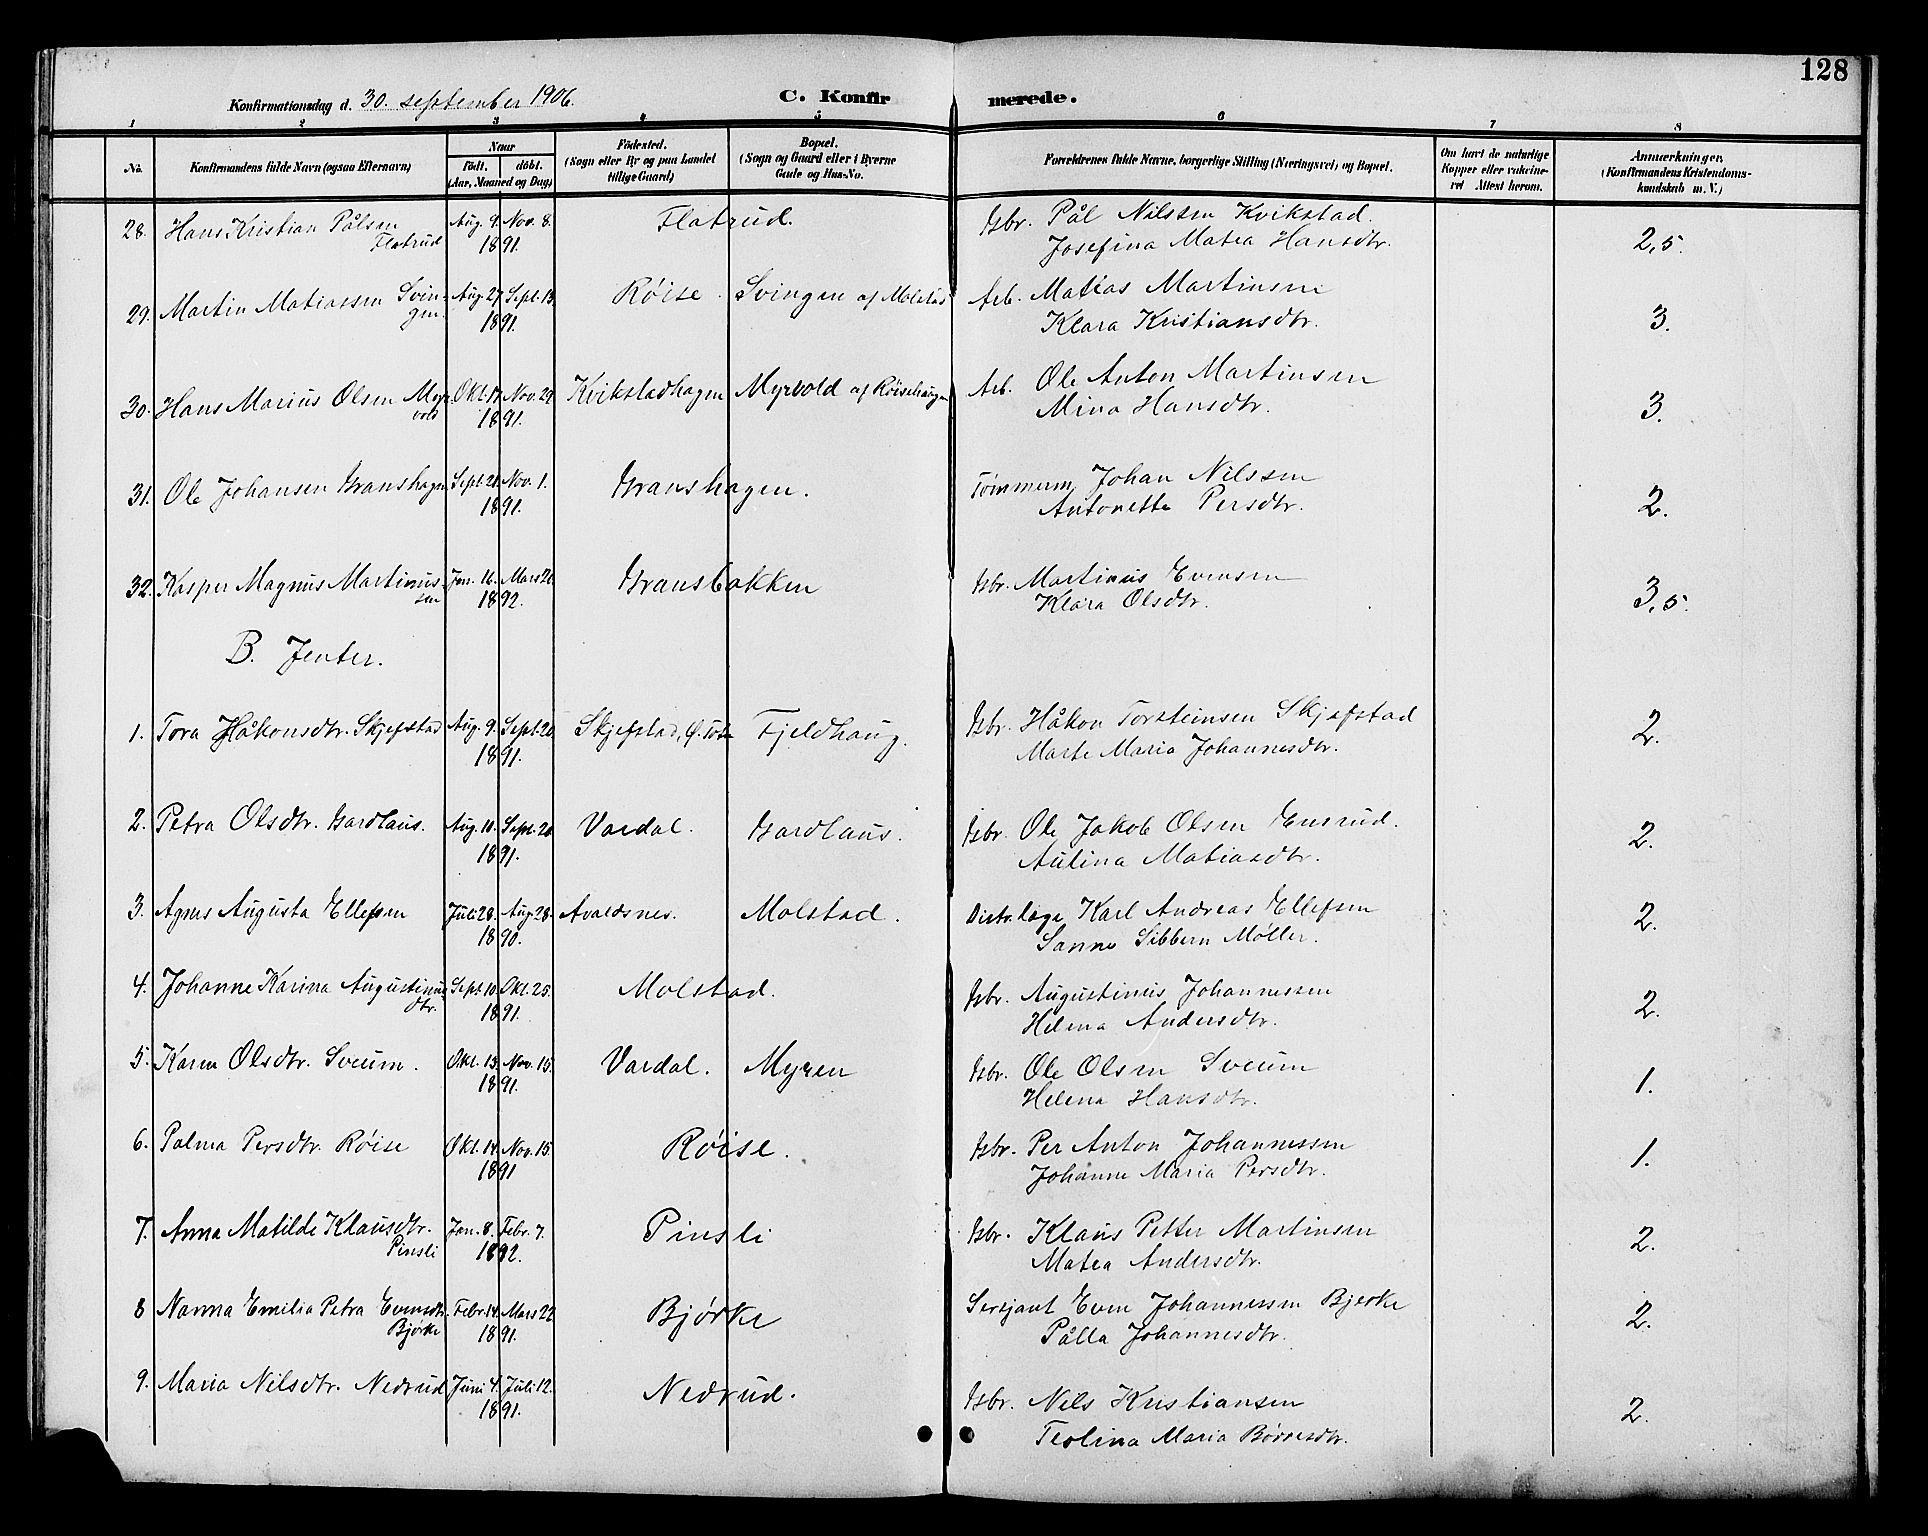 128
Konfirmationsdag d. 30. september 1906. C. Konfirmerede.
1 2 3 4 5 6 7 8
No. Konfirmandens fulde Navn (ogsaa Efternavn) Naar født. døbt. (Aar, Maaned og Dag) Fødested. (Sogn eller By og paa Landet tillige Gaard) Bopæl. (Sogn og Gaard eller i Byerne Gade og Hus-No. Forældrenes fulde Navne, borgerlige Stilling (Næringsvei) og Bopæl. Om havt de naturlige Kopper eller vaksineret Attest herom. Anmærkninger. (Konfirmandens Kristendomskundskab m. V.)
28. Hans Kristian Pålsen Aug. 9. Nov. 8. Flatrud. Gbr. Pål Nilssen Kvikstad.
Flatrud 1891. Josefina Matea Hansdtr. 2,5.
29. Martin Matiassen Svin- Aug. 27. Sept. 13. Røise. Svingen af Molstad Arb. Matias Martinsen
gen. 1891. Klara Kristiansdtr. 3.
30. Hans Marius Olsen Myr- Okt. 17. Nov. 29. Kvikstadhagen Myrvold af Røisehaugen Arb. Ole Anton Martinsen
vold 1891. Mina Hansdtr. 3.
31. Ole Johansen Granshagen Sept. 21. Nov. 1. Granshagen. Tømmerm. Johan Nilssen
1891. Antonette Persdtr. 2.
32. Kasper Magnus Martinus- Jan. 16. Mars 20. Gransbakken Gbr. Martinus Evensen
sen 1892. Klara Olsdtr. 3,5.
B. Jenter.
1. Tora Håkonsdtr. Skjefstad Aug. 9. Sept. 20. Skjefstad, Ø. Toten Fjeldhaug. Gbr. Håkon Torsteinsen Skjefstad
1891. Marte Maria Johannesdtr. 2.
2. Petra Olsdtr. Gardlaus. Aug. 10. Sept. 20. Vardal. Gardlaus. Gbr. Ole Jakob Olsen Ensrud.
1891. Aulina Matiasdtr. 2.
3. Agnes Augusta Ellefsen Juli 28. Aug. 28. Avaldsnes. Molstad. Distr.læge Karl Andreas Ellefsen
1890. Sanna Sibbern Møller. 2.
4. Johanne Karina Augustinus- Sept. 10. Okt. 25. Molstad. Gbr. Augustinus Johannessen
dtr. 1891. Helena Andersdtr. 2.
5. Karen Olsdtr. Sveum. Okt. 13. Nov. 15. Vardal. Myren Gbr. Ole Olsen Sveum
1891. Helena Hansdtr. 1.
6. Palma Persdtr. Røise Okt. 14. Nov. 15. Røise. Gbr. Per Anton Johannessen
1891 Johanne Maria Persdtr. 1.
7. Anna Matilde Klausdtr. Jan. 8. Febr. 7. Pinsli Gbr. Klaus Petter Martinsen
Pinsli 1892. Matea Andersdtr. 2.
8 Nanna Emilia Petra Evensdtr. Febr. 14. Mars 22. Bjørke Sersjant Even Johannessen Bjerke
Bjørke 1891. Pålla Johannesdtr. 2.
9. Maria Nilsdtr. Nedrud Juni 4. Juli 12. Nedrud. Gbr. Nils Kristiansen
1891. Teolina Maria Børresdtr. 2.